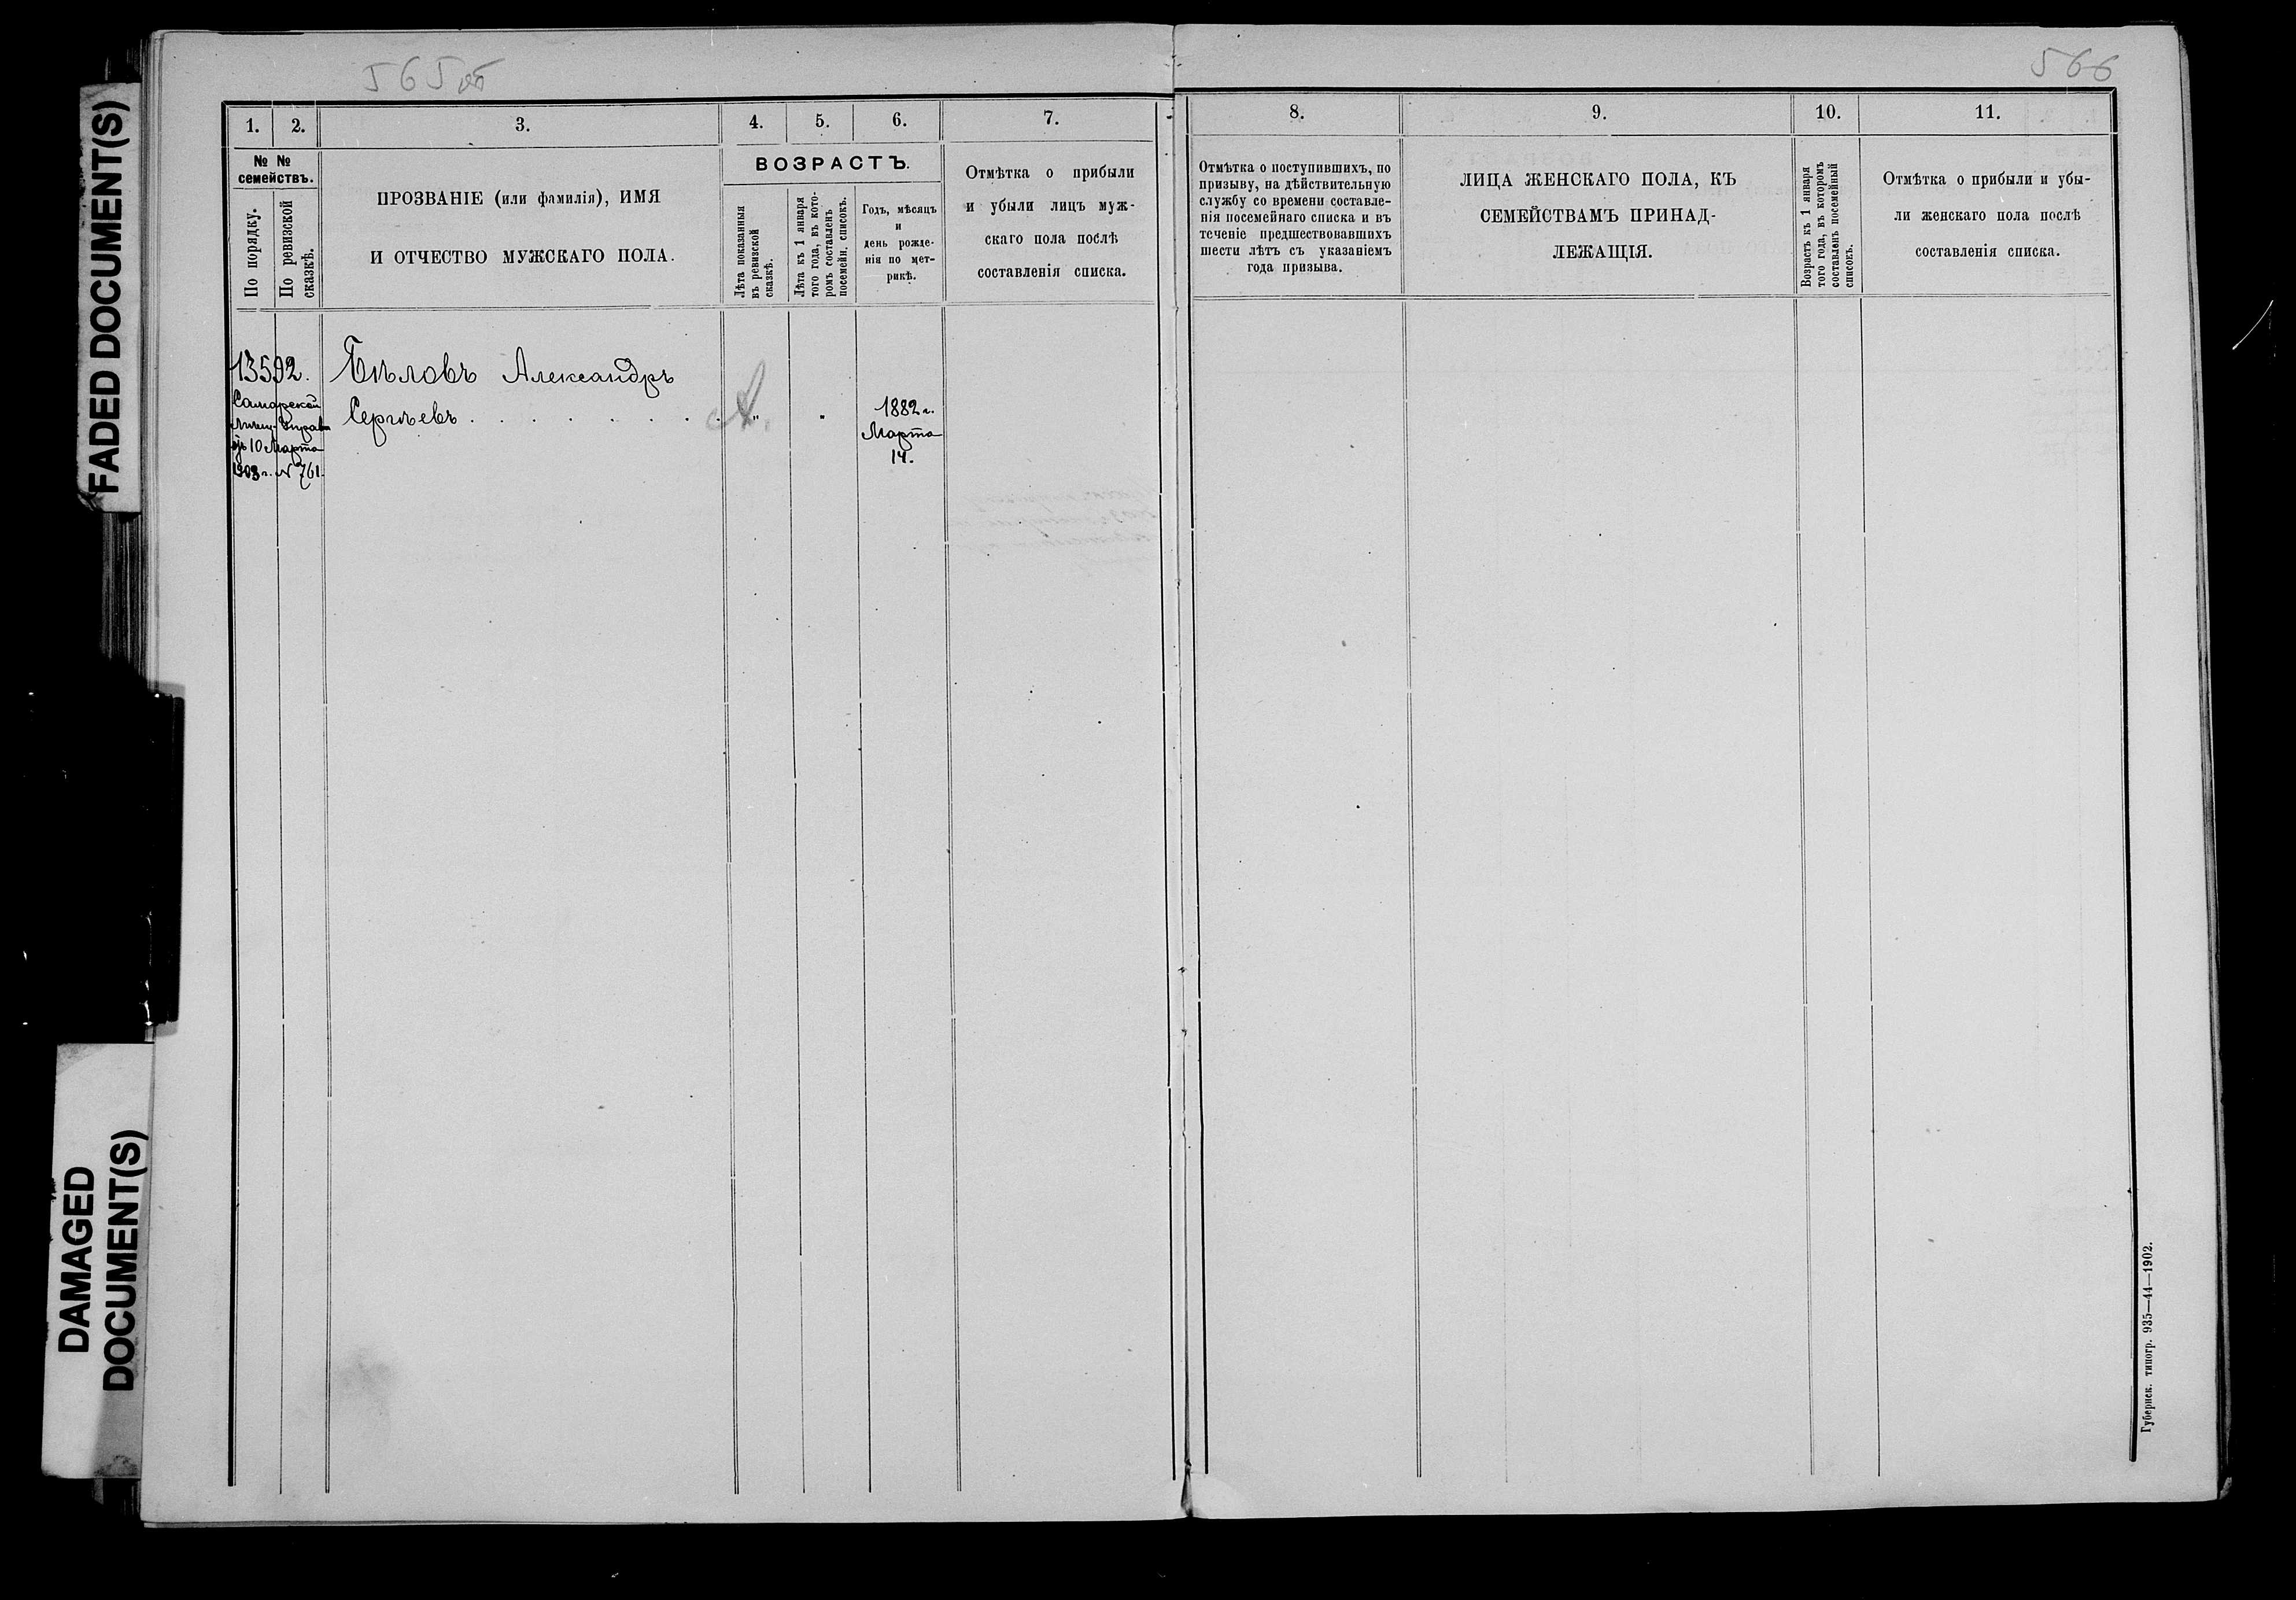 FADED DOCUMENT(S)
DAMAGED
DOCUMENT(S)
565об
1. 2. 3. 4. 5. 6. 7.
№ №
семействъ.
По порядку.
По ревизской
сказкѣ.
ПРОЗВАНІЕ (или фамилія), ИМЯ
И ОТЧЕСТВО МУЖСКАГО ПОЛА.
ВОЗРАСТЪ.
Лѣта показанныя
въ ревизской
сказкѣ.
Лѣта къ 1 января
того года, въ кото-
ромъ составленъ
посемейн. списокъ.
Годъ, мѣсяцъ
и
день рожде-
нія по мет-
рикѣ.
Отмѣтка о прибыли
и убыли лицъ муж-
скаго пола послѣ
составленія списка.
13592.
Самарской
отъ 10 Марта
1903 г. № 761.
Бѣловъ Александръ
Сергѣевъ . . . . . . . " "
1882 г.
Марта
14.
566
8. 9. 10. 11.
Отмѣтка о поступившихъ, по
призыву, на дѣйствительную
службу со времени составле-
нія посемейнаго списка и въ
теченіе предшествовавшихъ
шести лѣтъ съ указаніемъ
года призыва.
ЛИЦА ЖЕНСКАГО ПОЛА, КЪ
СЕМЕЙСТВАМЪ ПРИНАД-
ЛЕЖАЩІЯ.
Возрастъ къ 1 января
того года, въ которомъ
составленъ посемейный
списокъ.
Отмѣтка о прибыли и убы-
ли женскаго пола послѣ
составленія списка.
Губернск. типогр. 935—44—1902.